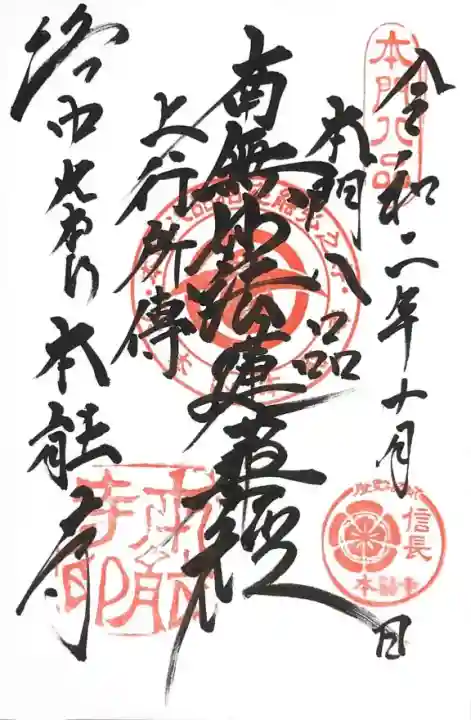 令和二年十月 日
本門八品
南無妙法蓮華経
上行所傳
本能寺
本門八品
信長
本能寺
本能寺印